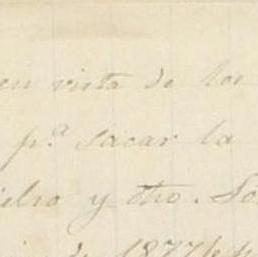 en vista de los
p.ª sacar la
y otro.
de 1877